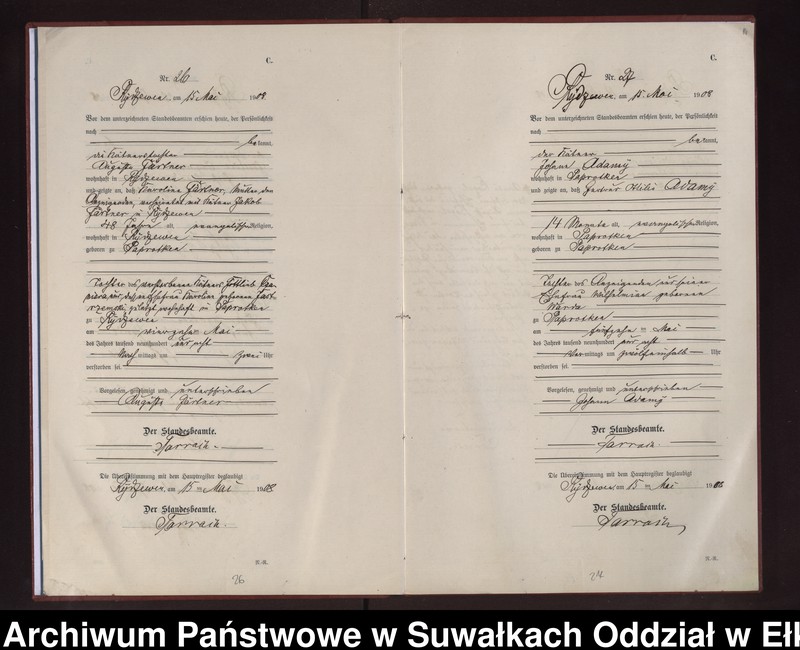 C.
Nr. 26
Rydzewen am 15 Mai 1908
Vor dem unterzeichneten Standesbeamten erschien heute, der Persönlichkeit
nach
bekannt,
die Kätnerstochter
Auguste Gärtner
wohnhaft in Rydzewen
und zeigte an, daß Karoline Gärtner, Mutter der
Anzeigenden, verheiratet mit Kätner Jakob
Gärtner in Rydzewen
48 Jahre alt, evangelischer Religion,
wohnhaft in Rydzewen
geboren zu Paprotken
Tochter des verstorbenen Kätners Gottlieb
Ehefrau Karoline geborenen
zuletzt wohnhaft in Paprotken
zu Rydzewen
am vierzehn Mai
des Jahres tausend neunhundert und acht
Nachmittags um zwei Uhr
verstorben sei.
Vorgelesen, genehmigt und unterschrieben
Auguste Gärtner
Der Standesbeamte.
Die Übereinstimmung mit dem Hauptregister beglaubigt
Rydzewen, am 15 ten Mai 1908
Der Standesbeamte.
26
C.
Nr. 27
Rydzewen am 15. Mai 1908
Vor dem unterzeichneten Standesbeamten erschien heute, der Persönlichkeit
nach
bekannt,
der Kätner
Johann Adamy
wohnhaft in Paprotken
und zeigte an, daß Gertrud Ottilie Adamy
14 Monate alt, evangelischer Religion,
wohnhaft in Paprotken
geboren zu Paprotken
Tochter des Anzeigenden und seiner
Ehefrau Wilhelmine geborenen
zu Paprotken
am fünfzehn ten Mai
des Jahres tausend neunhundert und acht
Vormittags um Uhr
verstorben sei.
Vorgelesen, genehmigt und unterschrieben
Johann Adamy
Der Standesbeamte.
Die Übereinstimmung mit dem Hauptregister beglaubigt
Rydzewen, am 15 ten Mai 1908
Der Standesbeamte.
Archiwum Państwowe w Suwałkach Oddział w Ełk